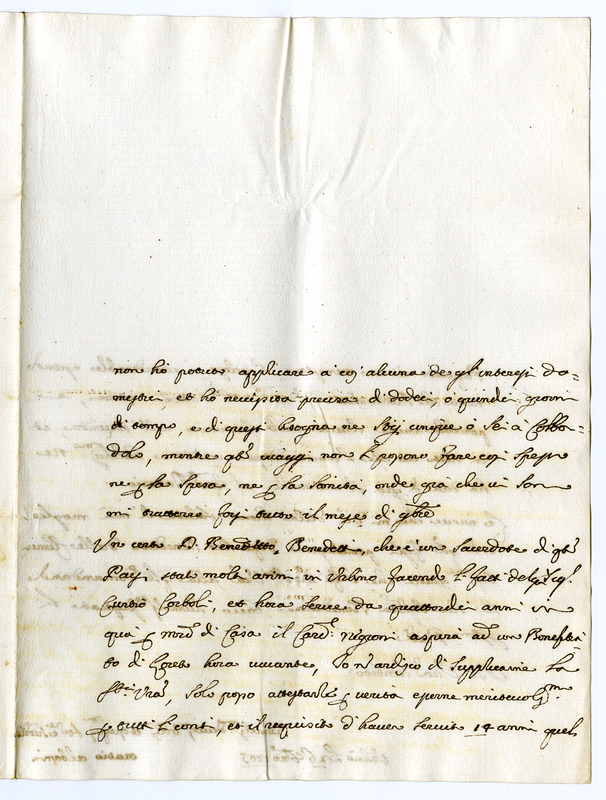 non ho potuto applicare à cos' alcuna de gl'interessi do=
mestici, et ho necessità precisa di dodeci, ò quindici giorni
di tempo, e di questi bisogna ne stij cinque ò sei à
dolo, mentre qti viaggi non si possono fare così spesso
ne p la spesa, ne p la sanità, onde già che vi son
mi tratterrò forsi tutto il mese di 9bre
Un certo D. Benedetto Benedetti, che è un sacerdote di qti
Paesi stato molti anni in Urbino facendo li fatti del
Curtio Corboli, et hora serve da quattordici anni in
quà p mrõ di Casa il Card. Negroni aspira ad un Benefitia
to di Loreto hora vacante, Io n' ardisco di supplicarne la
Stà Vrã, solo posso attestarle p verità esserne meritevoliss.mo
p tutti li conti, et il requisito d'haver servito 14 anni quel